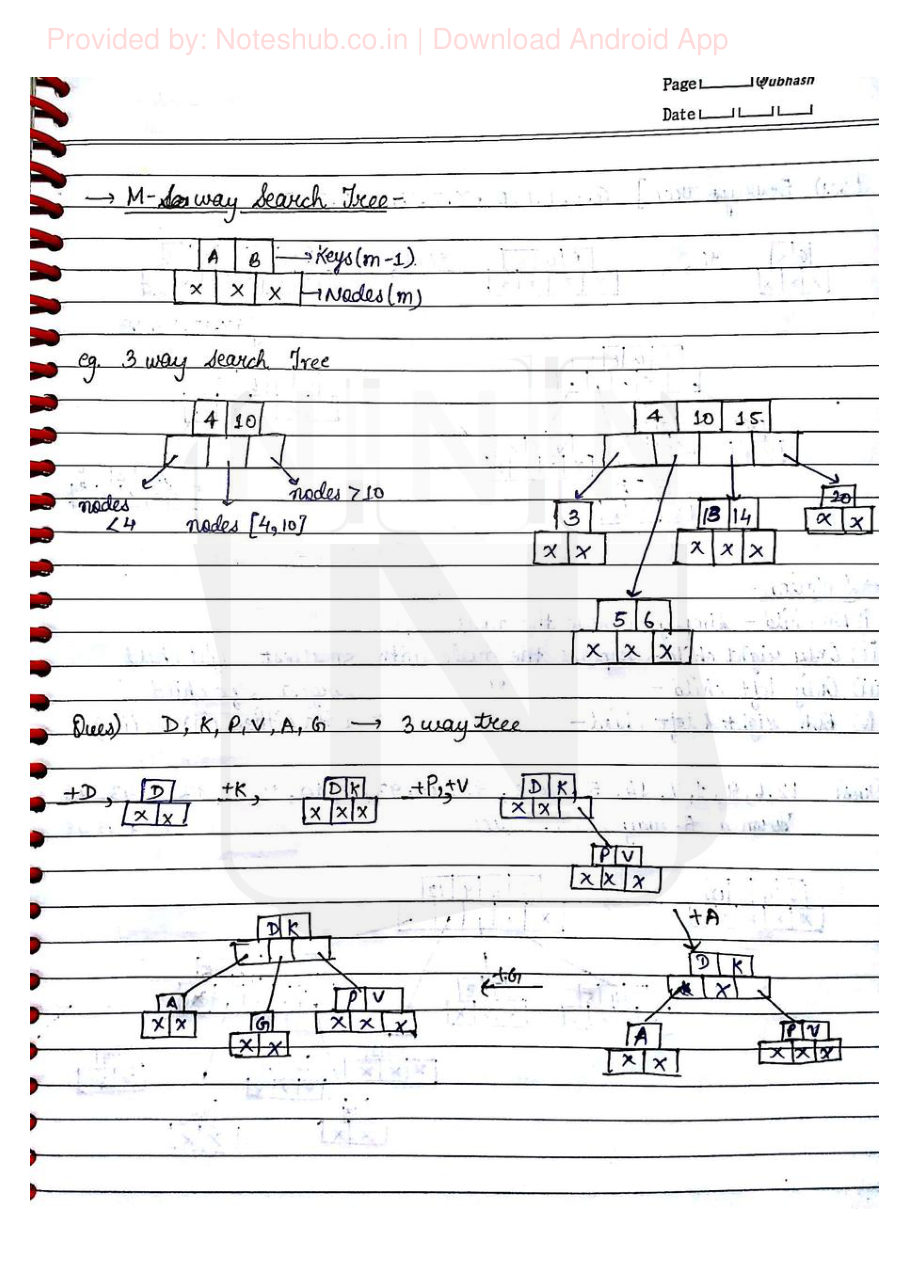 Provided by: Noteshub.co.in | Download Android App
Page
Date
→ M-way Search Tree-
A B → Keys(m-1).
x x x → Nodes(m)
eg. 3 way Search Tree
4 10
nodes <4
nodes [4,10]
nodes >10
4 10 15
3
x x
13 14
x x x
20
x x
5 6
x x x
Ques) D, K, P, V, A, G → 3 way tree
+D, D
x x
+K, D K
x x x
+P,+V D K
x x
P V
x x x
+A
D K
x
A
x x
P V
x x x
+G
D K
A
x x
G
x x
P V
x x x